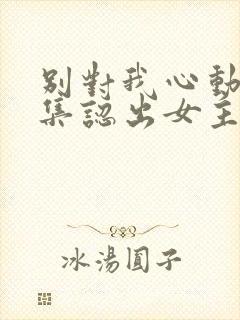 別對我心動
集認出女主
冰湯圓子